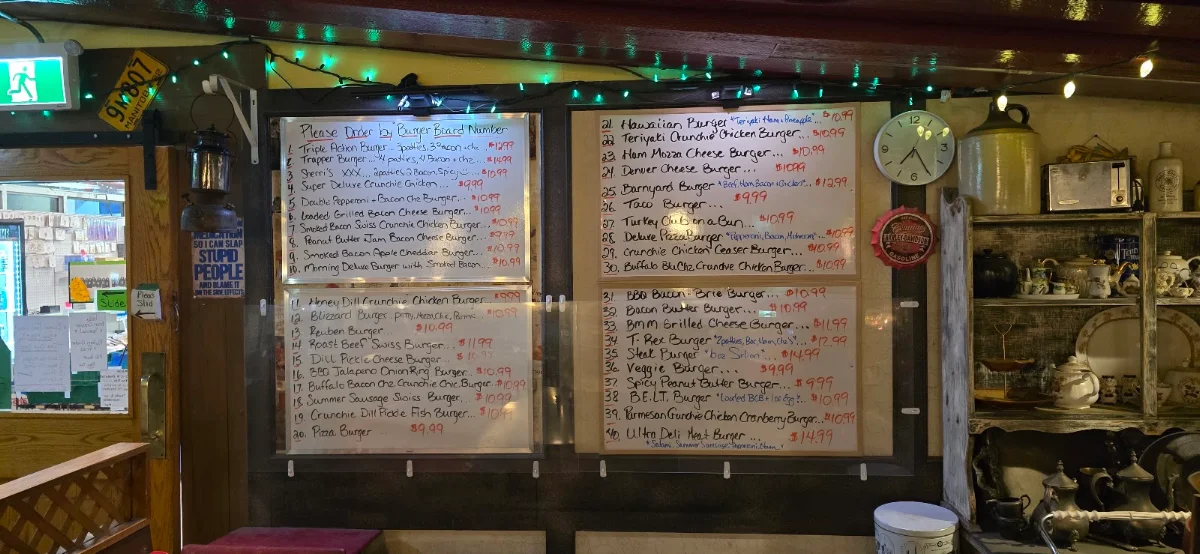 91W807
MANITOBA
SO I CAN SLAP
STUPID
PEOPLE
AND BLAME IT
ON THE SIDE EFFECT
Please
Please Order by "Burger Board Number
1. Triple Action Burger - 3patties, 3 Bacon + chz... $12.99
2. Trapper Burger... "4 patties, 4 Bacon + chz... $14.99
3 Sherri's XXX... 2patties, 2 Bacon, Spicy... $10.99
4. Super Deluxe Crunchie Chicken... $9.99
5. Double Pepperoni + Bacon Chz Burger... $10.99
6. Loaded Grilled Bacon Cheese Burger... $10.99
7. Smoked Bacon Swiss Crunchie Chicken Burger... $10.99
8. Peanut Butter + Jam Bacon Cheese Burger...
9. Smoked Bacon Apple Cheddar Burger... $10.99
10. Morning Deluxe Burger with Smoked Bacon... $10.99
11. Honey Dill Crunchie Chicken Burger... $9.99
12. Blizzard Burger $10.99
13. Reuben Burger $10.99
14 Roast Beef Swiss Burger... $11.99
15. Dill Pickle Cheese Burger... $10.99
16. BBQ Jalapeno Onion Ring Burger... $10.99
17. Buffalo Bacon Chz. Crunchie Chic Burger... $10.99
18. Summer Sausage Swiss Burger... $10.99
19. Crunchie Dill Pickle Fish Burger... $10.99
20. Pizza Burger $9.99
21. Hawaiian Burger "Teriyaki Ham + Pineapple"... $10.99
22. Teriyaki Crunchie Chicken Burger... $10.99
23. Ham Mozza Cheese Burger... $10.99
24. Denver Cheese Burger... $10.99
25. Barnyard Burger "Beef, Ham, Bacon + Chicken"... $12.99
26. Taco Burger... $9.99
27. Turkey Club on a Bun... $10.99
28. Deluxe Pizza Burger "Pepperoni, Bacon, Mushroom"... $10.99
29. Crunchie Chicken Ceaser Burger... $10.99
30. Buffalo Blu Chz Crunchie Chicken Burger... $10.99
31. BBQ Bacon + Brie Burger... $10.99
32. Bacon Butter Burger... $10.99
33. BMM Grilled Cheese Burger... $11.99
34 T-Rex Burger "2patties, Bac, Ham, Chz's"... $12.99
35. Steak Burger "6oz Sirloin"... $14.99
36. Veggie Burger... $9.99
37. Spicy Peanut Butter Burger... $9.99
38 B.E.L.T. Burger "Loaded BCB + 1oz Egg"... $10.99
39. Parmesan Crunchie Chicken Cranberry Burger... $10.99
40. Ultra Deli Meat Burger... $14.99
"Salami, Summer Sausage, Pepperoni, Bacon
12
3
6
9
GASOLINE